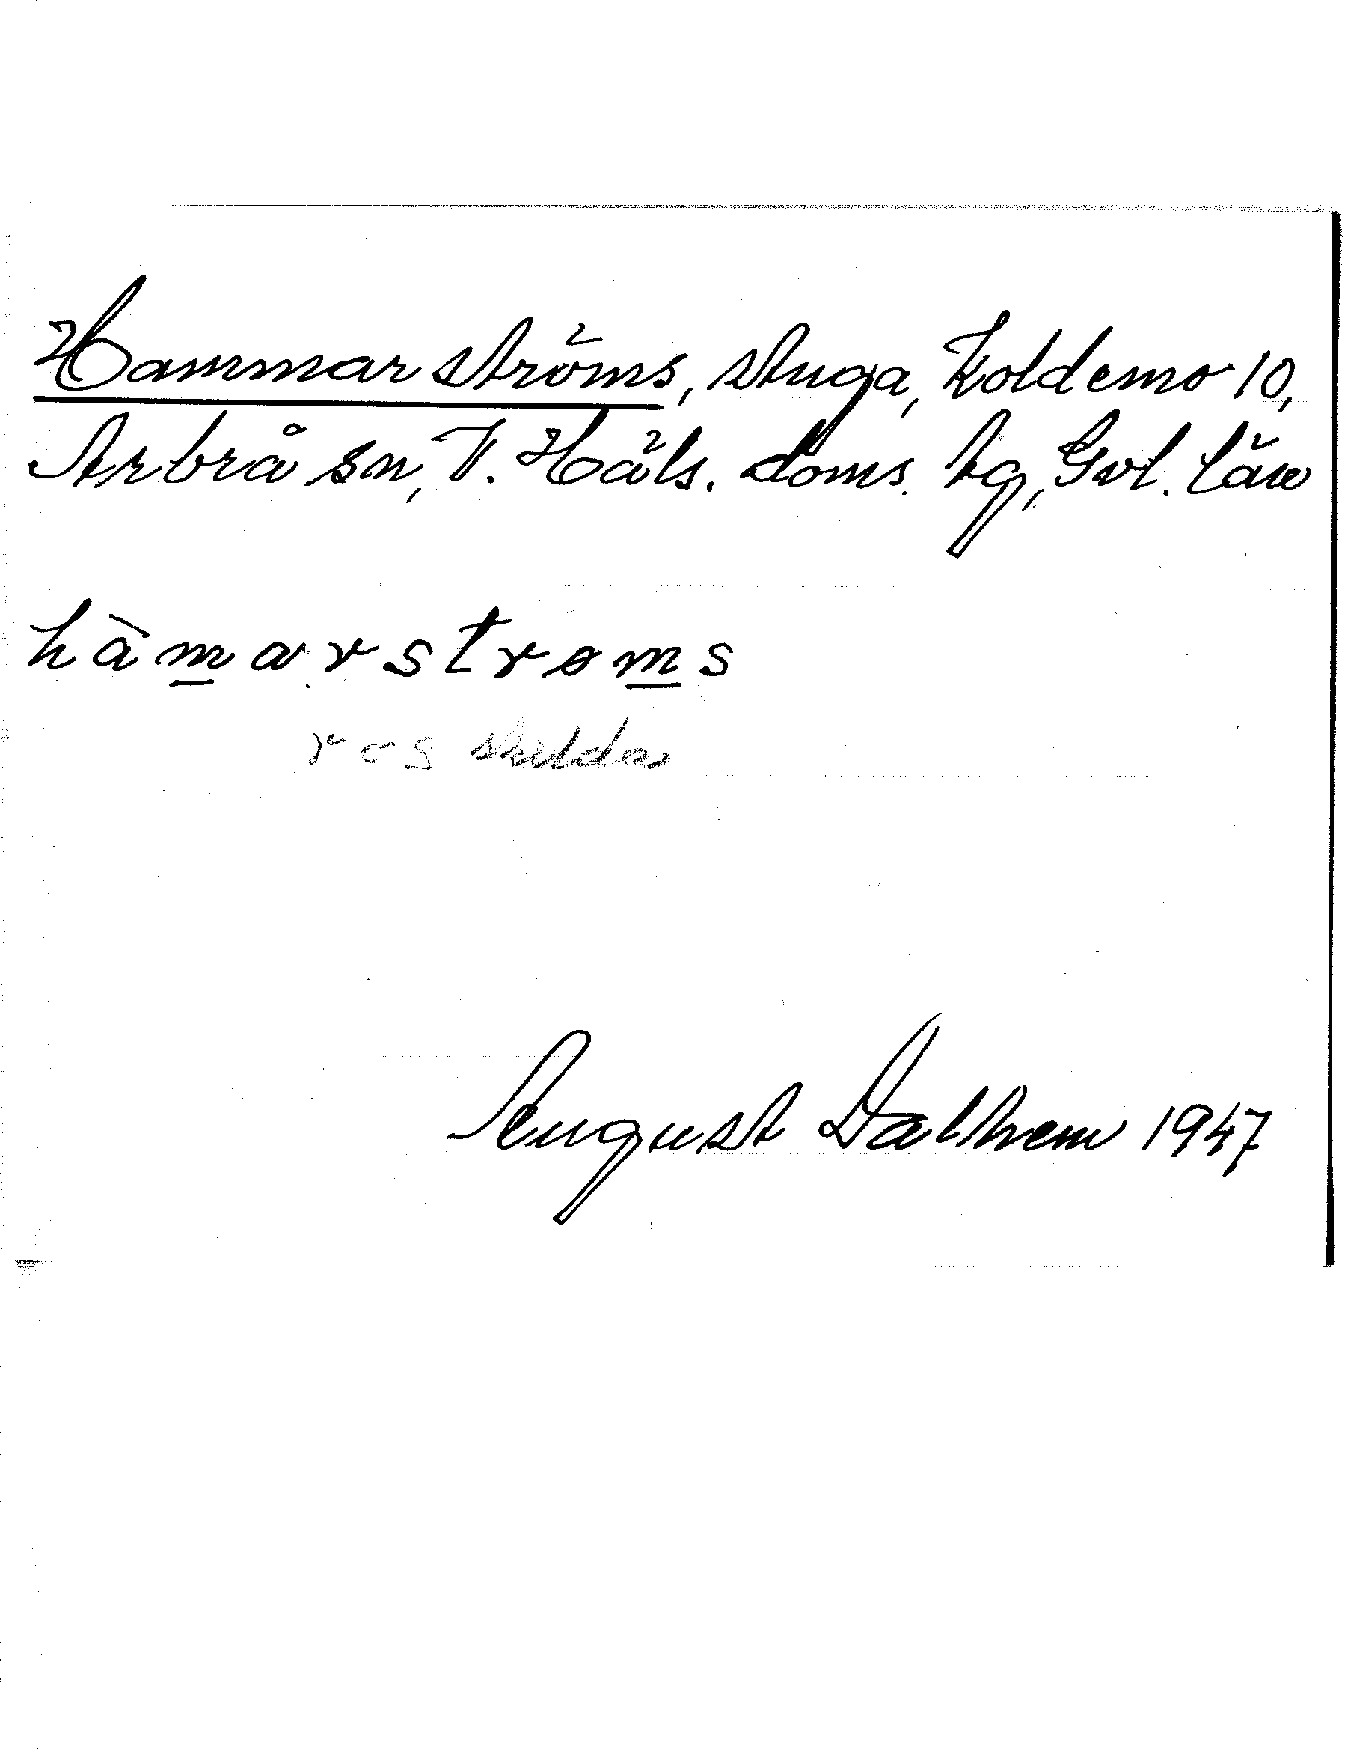 Hammarströms, stuga, Koldemo 10,
Arbrå sn, V. Häls. doms. hg, Gvl. län
hàmarstrøms
r o s skilda
August Dalhem 1947